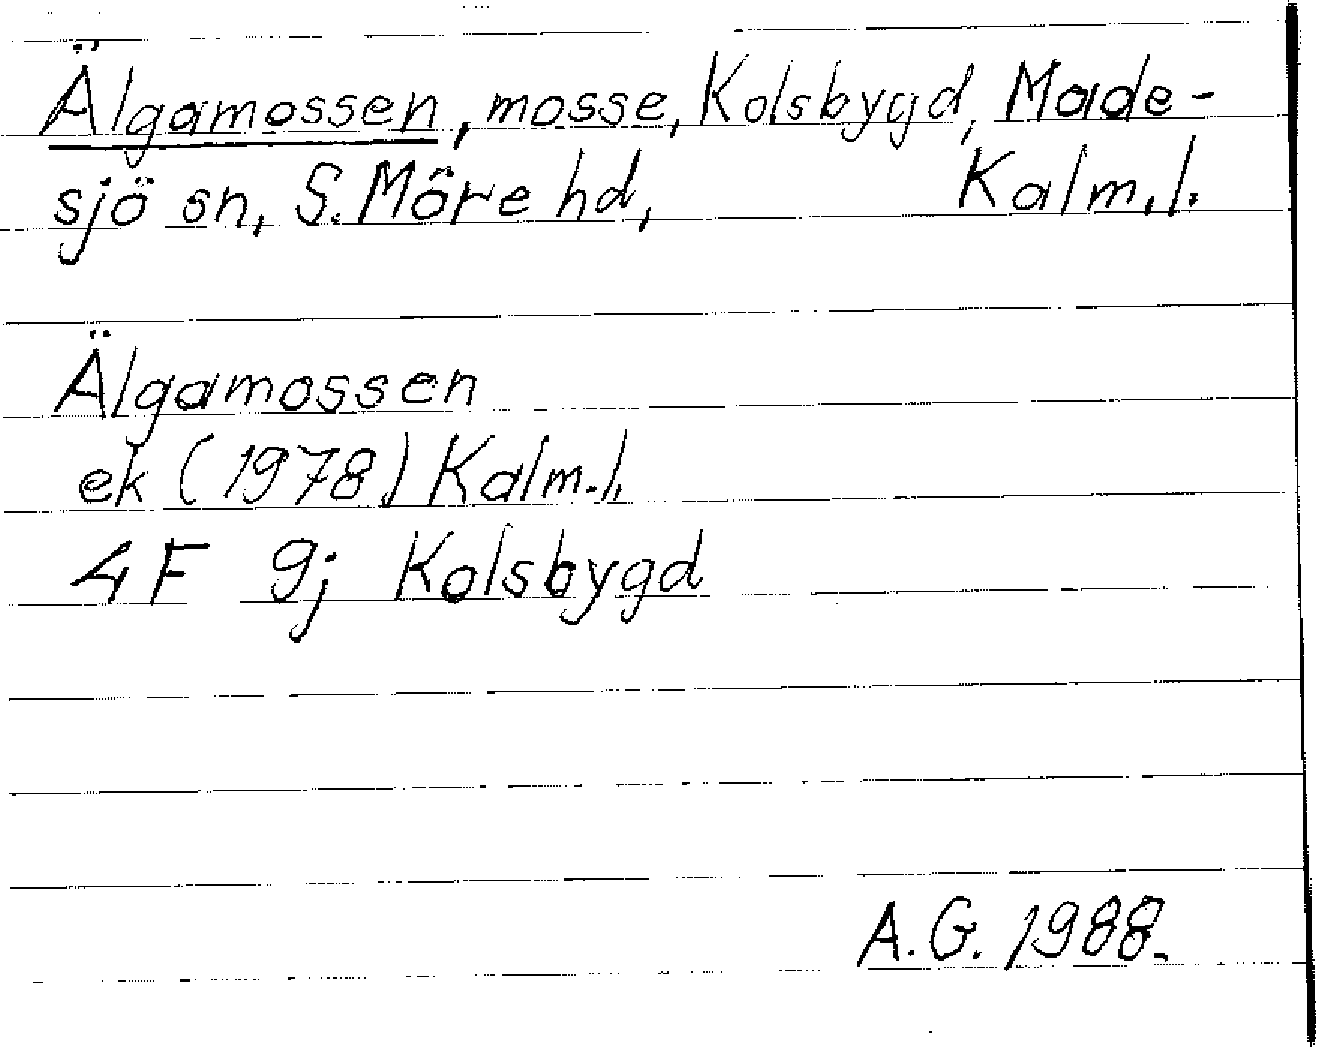 Älgamossen, mosse, Kolsbygd, Made-
sjö sn, S. Möre hd, Kalm. l.
Älgamossen
ek (1978) Kalm. l.
4F 9j Kolsbygd
A. G. 1988.